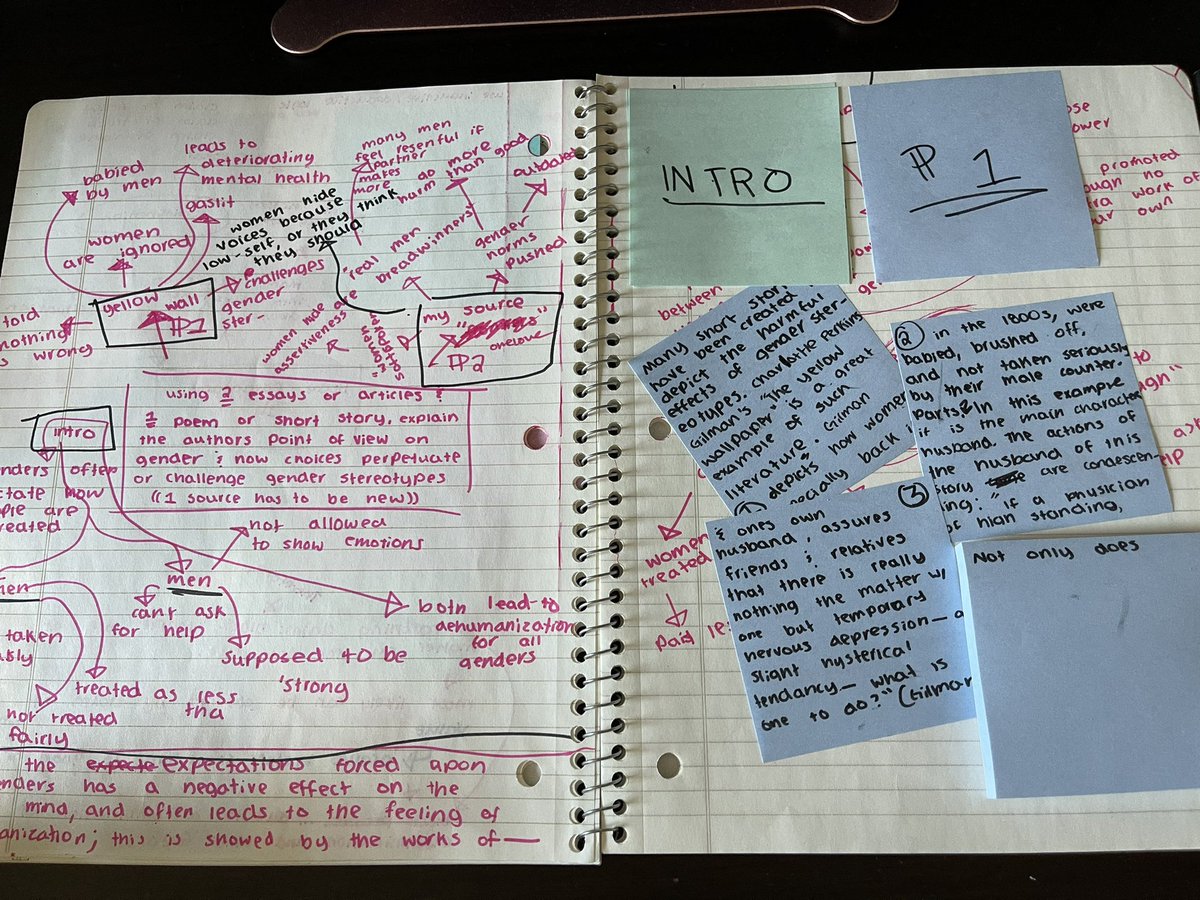 babied
by men
leads to
deteriorating
mental health
gaslit
women
are ignored
yellow wall
PP1
told
nothing
wrong
challenges
gender
ster-
women hide
voices because
low-self, or they think
they should
many men
feel resenful if
partner
makes
more
do more
harm than
good
outdated
"real men
breadwinners"
gender
norms
pushed
women hide
assertiveness
my source
onelove
PP2
using 2 essays or articles &
1 poem or short story, explain
the authors point of view on
gender & how choices perpetuate
or challenge gender stereotypes
((1 source has to be new))
intro
often
how
are
treated
men
not allowed
to show emotions
can't ask
for help
supposed to be
'strong
both lead to
dehumanization
for all
genders
taken
treated as less
tha
not treated
fairly
the expecte expectations forced upon
genders has a negative effect on the
mind, and often leads to the feeling of
anization; this is showed by the works of—
INTRO
PP 1
promoted
no
work of
own
between
women
treated
paid
many short stor
have been created
depict the harmful
effects of gender ster-
eotypes. Charlotte Perkins
Gilman's "the yellow
wallpaper" is a great
example of such
literature. Gilman
depicts how women
socially back
2
in the 1800s, were
babied, brushed off,
and not taken seriously
by their male counter-
parts. In this example
it is the main character
husband. The actions of
the husband of this
story are condescen-
ing: "if a physician
high standing,
3
& ones own
husband, assures
friends & relatives
that there is really
nothing the matter w/
one but temporary
nervous depression— a
slight hysterical
tendancy— what is
one to do?" (Gilman
Not only does